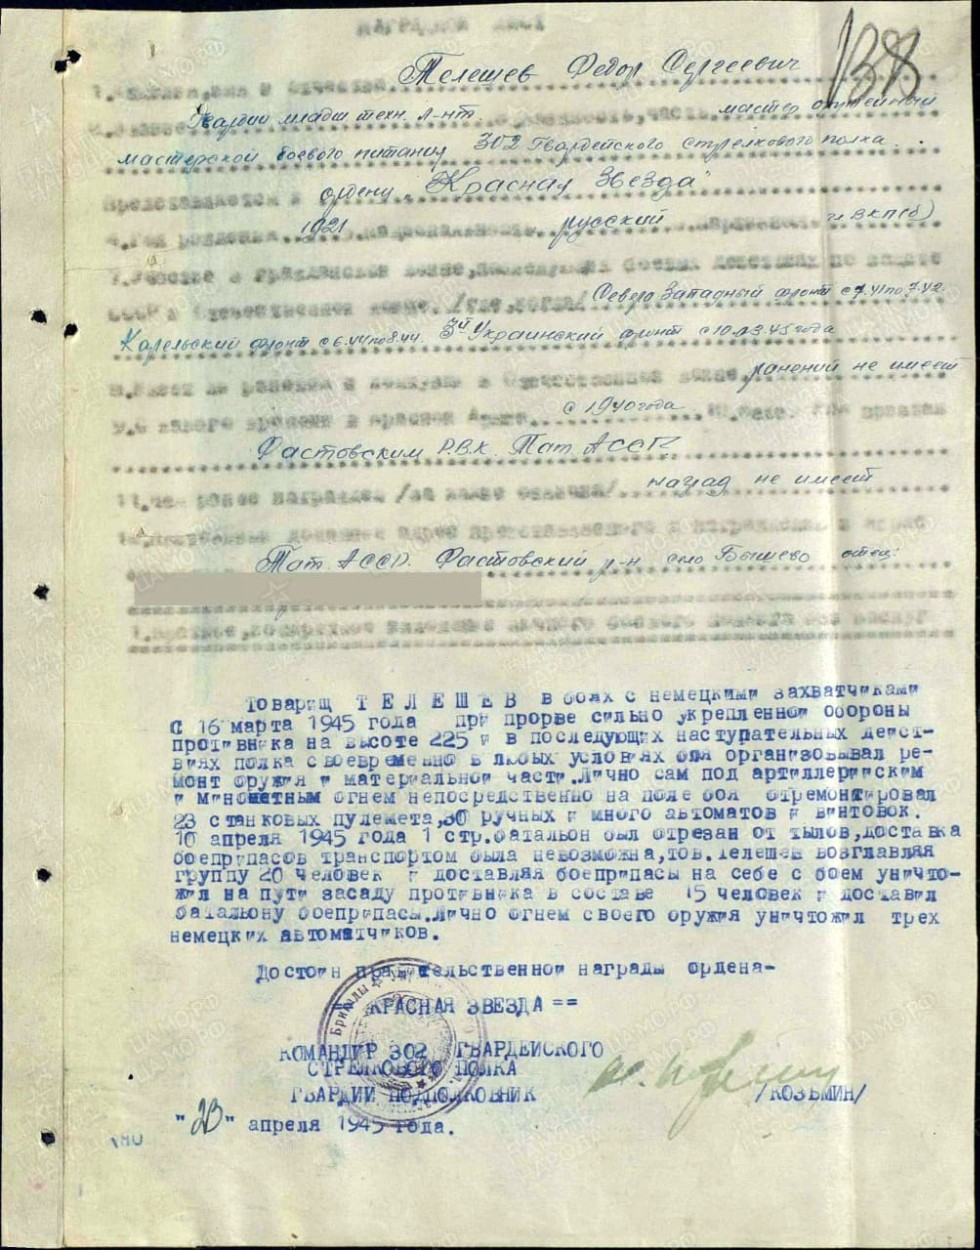 НАГРАДНОЙ ЛИСТ
138
Телешев Федор Сергеевич
1.Фамилия,имя и отчество
Гвардии младш техн. л-нт мастер оружейный
мастерской боевого питания 302 Гвардейского стрелкового полка
Представляется к ордену "Красная Звезда"
4.Год рождения 1921 5.национальность русский 6.партийность чл ВКП(б)
7.Участие в гражданской войне,последующих боевых действиях по защите
СССР и Отечественной войне. /где,когда/ Северо Западный фронт с 7.41 по 7.42.
Карельский фронт с 6.44 по 8.44. 3й Украинский фронт с 10.03.45 года
8.Имеет ли ранения и контузии в Отечественной войне, ранений не имеет
9.С какого времени в красной Армии с 1940 года 10.Каким РВК призван
Фастовским Р.В.К. Тат АССР
11.Чем ранее награжден /за какие отличия/ наград не имеет
12.Постоянный домашний адрес представляемого к награждению и адрес
Тат АССР. Фастовский р-н село Бышево отец:
1.Краткое,конкретное изложение личного боевого подвига или заслуг
Товарищ ТЕЛЕШЕВ в боях с немецкими захватчиками
С 16 марта 1945 года при прорве сильно укрепленной обороны
противника на высоте 225 и в последующих наступательных дейст-
виях полка своевременно в любых условиях боя организовывал ре-
монт оружия и материальной части.Лично сам под артиллерийским
и минометным огнем непосредственно на поле боя отремонтировал
23 станковых пулемета,30 ручных и много автоматов и винтовок.
10 апреля 1945 года 1 стр.батальон был отрезан от тылов,доставка
боеприпасов транспортом была невозможна,тов.Телешев возглавляя
группу 20 человек и доставляя боеприпасы на себе с боем уничто-
жил на пути засаду противника в составе 15 человек и доставил
батальону боеприпасы.Лично огнем своего оружия уничтожил трех
немецких автоматчиков.
Достоин правительственной награды ордена-
КРАСНАЯ ЗВЕЗДА ==
КОМАНДИР 302 ГВАРДЕЙСКОГО
СТРЕЛКОВОГО ПОЛКА
ГВАРДИИ ПОДПОЛКОВНИК /КОЗЬМИН/
"23" апреля 1945 года.